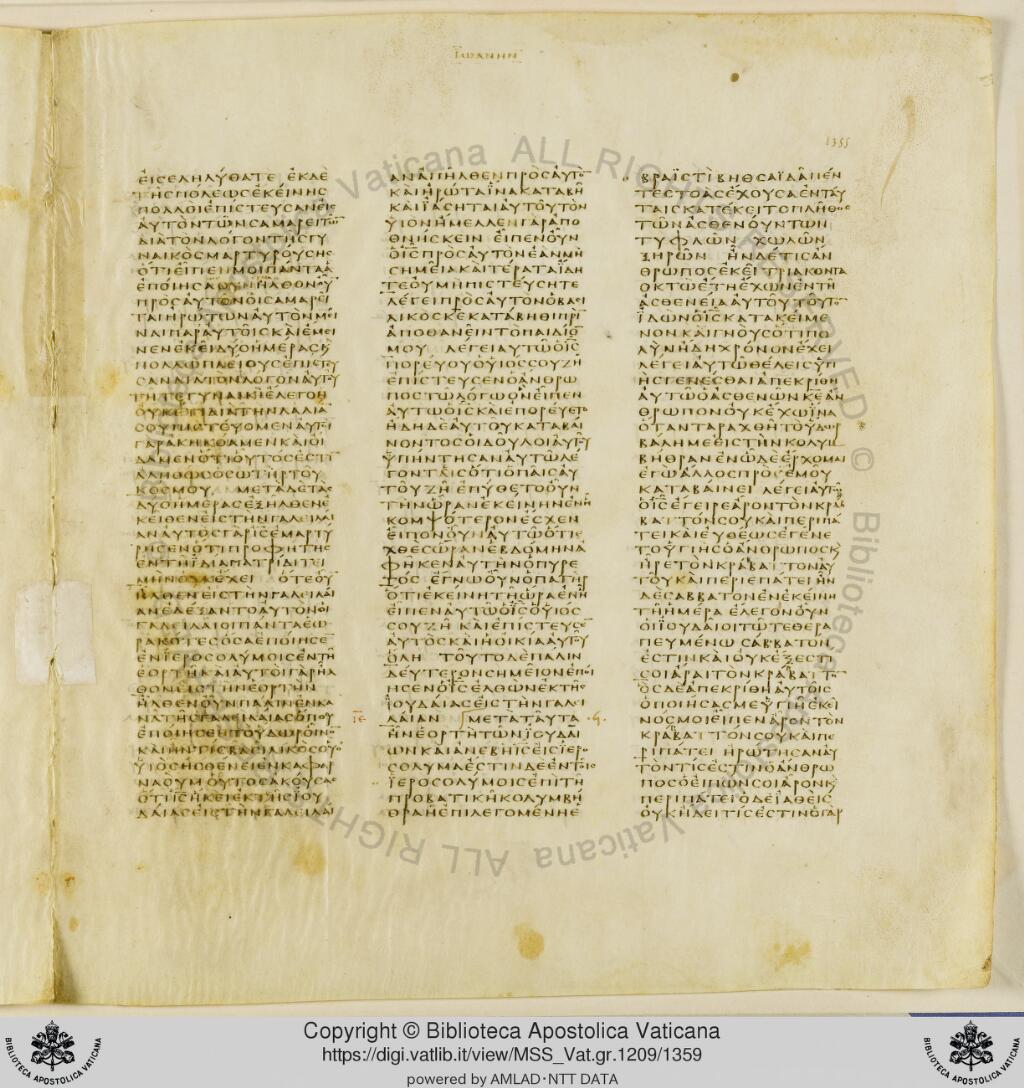 ΙΩΑΝΗΝ
1355
ΕΙΣΕΛΗΛΥΘΑΤΕ ΕΚΔΕ
ΤΗΣΠΟΛΕΩΣΕΚΕΙΝΗΣ
ΠΟΛΛΟΙΕΠΙΣΤΕΥΣΑΝΕΙΣ
ΑΥΤΟΝΤΩΝΣΑΜΑΡΕΙΤΩ̅
ΔΙΑΤΟΝΛΟΓΟΝΤΗΣΓΥ
ΝΑΙΚΟΣΜΑΡΤΥΡΟΥΣΗΣ
ΟΤΙΕΙΠΕΝΜΟΙΠΑΝΤΑΑ
ΕΠΟΙΗΣΑΣΥΝΗΛΘΟΝΟΥ̅
ΠΡΟΣΑΥΤΟΝΟΙΣΑΜΑΡΕΙ
ΤΑΙΗΡΩΤΩΝΑΥΤΟΝΜΕΙ
ΝΑΙΠΑΡΑΥΤΟΙΣΚΑΙΕΜΕΙ
ΝΕΝΕΚΕΙΔΥΟΗΜΕΡΑΣΚ
ΠΟΛΛΩΠΛΕΙΟΥΣΕΠΙΣΤΕΥ
ΣΑΝΔΙΑΤΟΝΛΟΓΟΝΑΥΤΟΥ
ΤΗΤΕΓΥΝΑΙΚΙΕΛΕΓΟΝ
ΟΥΚΕΤΙΔΙΑΤΗΝΛΑΛΙΑ
ΣΟΥΠΙΣΤΕΥΟΜΕΝΑΥΤΟΙ
ΓΑΡΑΚΗΚΟΑΜΕΝΚΑΙΟΙ
ΔΑΜΕΝΟΤΙΟΥΤΟΣΕΣΤΙ̅
ΑΛΗΘΩΣΟΣΩΤΗΡΤΟΥ
ΚΟΣΜΟΥ ΜΕΤΑΔΕΤΑΣ
ΔΥΟΗΜΕΡΑΣΕΞΗΛΘΕΝΕ
ΚΕΙΘΕΝΕΙΣΤΗΝΓΑΛΕΙΛΑΙ
ΑΝΑΥΤΟΣΓΑΡΙΣΕΜΑΡΤΥ
ΡΗΣΕΝΟΤΙΠΡΟΦΗΤΗΣ
ΕΝΤΗΙΔΙΑΠΑΤΡΙΔΙΤΕΙ
ΜΗΝΟΥΚΕΧΕΙ ΟΤΕΟΥ̅
ΗΛΘΕΝΕΙΣΤΗΝΓΑΛΕΙΛΑΙ
ΑΝΕΔΕΞΑΝΤΟΑΥΤΟΝΟΙ
ΓΑΛΕΙΛΑΙΟΙΠΑΝΤΑΕΩ
ΡΑΚΟΤΕΣΟΣΑΕΠΟΙΗΣΕ̅
ΕΝΙΕΡΟΣΟΛΥΜΟΙΣΕΝΤΗ
ΕΟΡΤΗΚΑΙΑΥΤΟΙΓΑΡΗΛ
ΘΟΝΕΙΣΤΗΝΕΟΡΤΗΝ
ΗΛΘΕΝΟΥΝΠΑΛΙΝΕΝΚΑ
ΝΑΤΗΣΓΑΛΕΙΛΑΙΑΣΟΠΟΥ
ΕΠΟΙΗΣΕΝΤΟΥΔΩΡΟΙΝΟ̅
ΚΑΙΗΝΤΙΣΒΑΣΙΛΙΚΟΣΟΥ
ΥΙΟΣΗΣΘΕΝΕΙΕΝΚΑΦΑΡ
ΝΑΟΥΜΟΥΤΟΣΑΚΟΥΣΑΣ
ΟΤΙΙΣΗΚΕΙΕΚΤΗΣΙΟΥ
ΔΑΙΑΣΕΙΣΤΗΝΓΑΛΕΙΛΑΙ
ΑΝΑΠΗΛΘΕΝΠΡΟΣΑΥΤΟ̅
ΚΑΙΗΡΩΤΑΙΝΑΚΑΤΑΒΗ
ΚΑΙΙΑΣΗΤΑΙΑΥΤΟΥΤΟΝ
ΥΙΟΝΗΜΕΛΛΕΝΓΑΡΑΠΟ
ΘΝΗΣΚΕΙΝ ΕΙΠΕΝΟΥΝ
ΟΙΣΠΡΟΣΑΥΤΟΝΕΑΝΜΗ
ΣΗΜΕΙΑΚΑΙΤΕΡΑΤΑΙΔΗ
ΤΕΟΥΜΗΠΙΣΤΕΥΣΗΤΕ
ΛΕΓΕΙΠΡΟΣΑΥΤΟΝΟΒΑΣΙ
ΛΙΚΟΣΚΕΚΑΤΑΒΗΘΙΠΡΙ̅
ΑΠΟΘΑΝΕΙΝΤΟΠΑΙΔΙΟ̅
ΜΟΥ ΛΕΓΕΙΑΥΤΩΟΙΣ
ΠΟΡΕΥΟΥΟΥΙΟΣΣΟΥΖΗ
ΕΠΙΣΤΕΥΣΕΝΟΑΝΘΡΩ
ΠΟΣΤΩΛΟΓΩΟΝΕΙΠΕΝ
ΑΥΤΩΟΙΣΚΑΙΕΠΟΡΕΥΕΤΟ
ΗΔΗΔΕΑΥΤΟΥΚΑΤΑΒΑΙ
ΝΟΝΤΟΣΟΙΔΟΥΛΟΙΑΥΤΟΥ
ΥΠΗΝΤΗΣΑΝΑΥΤΩΛΕ
ΓΟΝΤΕΣΟΤΙΟΠΑΙΣΑΥ
ΤΟΥΖΗ ΕΠΥΘΕΤΟΟΥΝ
ΤΗΝΩΡΑΝΕΚΕΙΝΗΝΕΝΗ
ΚΟΜΨΟΤΕΡΟΝΕΣΧΕΝ
ΕΙΠΟΝΟΥΝΑΥΤΩΟΤΙΕ
ΧΘΕΣΩΡΑΝΕΒΔΟΜΗΝΑ
ΦΗΚΕΝΑΥΤΗΝΟΠΥΡΕ
ΤΟΣ ΕΓΝΩΟΥΝΟΠΑΤΗΡ
ΟΤΙΕΚΕΙΝΗΤΗΩΡΑΕΝΗ
ΕΙΠΕΝΑΥΤΩΟΙΣΟΥΙΟΣ
ΣΟΥΖΗ ΚΑΙΕΠΙΣΤΕΥΣΕ̅
ΑΥΤΟΣΚΑΙΗΟΙΚΙΑΑΥΤΟΥ
ΟΛΗ ΤΟΥΤΟΔΕΠΑΛΙΝ
ΔΕΥΤΕΡΟΝΣΗΜΕΙΟΝΕΠΟΙ
ΗΣΕΝΟΙΣΕΛΘΩΝΕΚΤΗΣ
ΙΟΥΔΑΙΑΣΕΙΣΤΗΝΓΑΛΕΙ
ΛΑΙΑΝ ΜΕΤΑΤΑΥΤΑ
ΗΝΕΟΡΤΗΤΩΝΙΟΥΔΑΙ
ΩΝΚΑΙΑΝΕΒΗΙΣΕΙΣΙΕΡΟ
ΣΟΛΥΜΑΕΣΤΙΝΔΕΕΝΤΟΙΣ
ΙΕΡΟΣΟΛΥΜΟΙΣΕΠΙΤΗ
ΠΡΟΒΑΤΙΚΗΚΟΛΥΜΒΗ
ΘΡΑΗΕΠΙΛΕΓΟΜΕΝΗΕ
ΒΡΑΙΣΤΙΒΗΘΣΑΙΔΑΠΕΝ
ΤΕΣΤΟΑΣΕΧΟΥΣΑΕΝΤΑΥ
ΤΑΙΣΚΑΤΕΚΕΙΤΟΠΛΗΘΟΣ
ΤΩΝΑΣΘΕΝΟΥΝΤΩΝ
ΤΥΦΛΩΝ ΧΩΛΩΝ
ΞΗΡΩΝ ΗΝΔΕΤΙΣΑΝ
ΘΡΩΠΟΣΕΚΕΙΤΡΙΑΚΟΝΤΑ
ΟΚΤΩΕΤΗΕΧΩΝΕΝΤΗ
ΑΣΘΕΝΕΙΑΑΥΤΟΥΤΟΥΤΟ̅
ΙΔΩΝΟΙΣΚΑΤΑΚΕΙΜΕ
ΝΟΝΚΑΙΓΝΟΥΣΟΤΙΠΟ
ΛΥΝΗΔΗΧΡΟΝΟΝΕΧΕΙ
ΛΕΓΕΙΑΥΤΩΘΕΛΕΙΣΥΓΙ
ΗΣΓΕΝΕΣΘΑΙΑΠΕΚΡΙΘΗ
ΑΥΤΩΟΑΣΘΕΝΩΝΚΕΑΝ
ΘΡΩΠΟΝΟΥΚΕΧΩΙΝΑ
ΟΤΑΝΤΑΡΑΧΘΗΤΟΥΔΩΡ
ΒΑΛΗΜΕΕΙΣΤΗΝΚΟΛΥΜ
ΒΗΘΡΑΝΕΝΩΔΕΕΡΧΟΜΑΙ
ΕΓΩΑΛΛΟΣΠΡΟΕΜΟΥ
ΚΑΤΑΒΑΙΝΕΙ ΛΕΓΕΙΑΥΤΩ
ΟΙΣΕΓΕΙΡΕΑΡΟΝΤΟΝΚΡΑΒ
ΒΑΤΤΟΝΣΟΥΚΑΙΠΕΡΙΠΑ
ΤΕΙΚΑΙΕΥΘΕΩΣΕΓΕΝΕ
ΤΟΥΓΙΗΣΟΑΝΘΡΩΠΟΣΚ
ΗΡΕΤΟΝΚΡΑΒΑΤΤΟΝΑΥ
ΤΟΥΚΑΙΠΕΡΙΕΠΑΤΕΙΗΝ
ΔΕΣΑΒΒΑΤΟΝΕΝΕΚΕΙΝΗ
ΤΗΗΜΕΡΑ ΕΛΕΓΟΝΟΥΝ
ΟΙΙΟΥΔΑΙΟΙΤΩΤΕΘΕΡΑ
ΠΕΥΜΕΝΩΣΑΒΒΑΤΟΝ
ΕΣΤΙΝΚΑΙΟΥΚΕΞΕΣΤΙ̅
ΣΟΙΑΡΑΙΤΟΝΚΡΑΒΑΤΤΟ̅
ΟΣΔΕΑΠΕΚΡΙΘΗΑΥΤΟΙΣ
ΟΠΟΙΗΣΑΣΜΕΥΓΙΗΕΚΕΙ
ΝΟΣΜΟΙΕΙΠΕΝΑΡΟΝΤΟΝ
ΚΡΑΒΑΤΤΟΝΣΟΥΚΑΙΠΕ
ΡΙΠΑΤΕΙ ΗΡΩΤΗΣΑΝΑΥ
ΤΟΝΤΙΣΕΣΤΙΝΟΑΝΘΡΩ
ΠΟΣΟΕΙΠΩΝΣΟΙΑΡΟΝΚ
ΠΕΡΙΠΑΤΕΙΟΔΕΙΑΘΕΙΣ
ΟΥΚΗΔΕΙΤΙΣΕΣΤΙΝΟΓΑΡ
Vaticana ALL RIGHTS RESERVED © Biblioteca Apostolica Vaticana ALL RIGHTS
BIBLIOTECA APOSTOLICA VATICANA
Copyright © Biblioteca Apostolica Vaticana
https://digi.vatlib.it/view/MSS_Vat.gr.1209/1359
powered by AMLAD·NTT DATA
BIBLIOTECA APOSTOLICA VATICANA